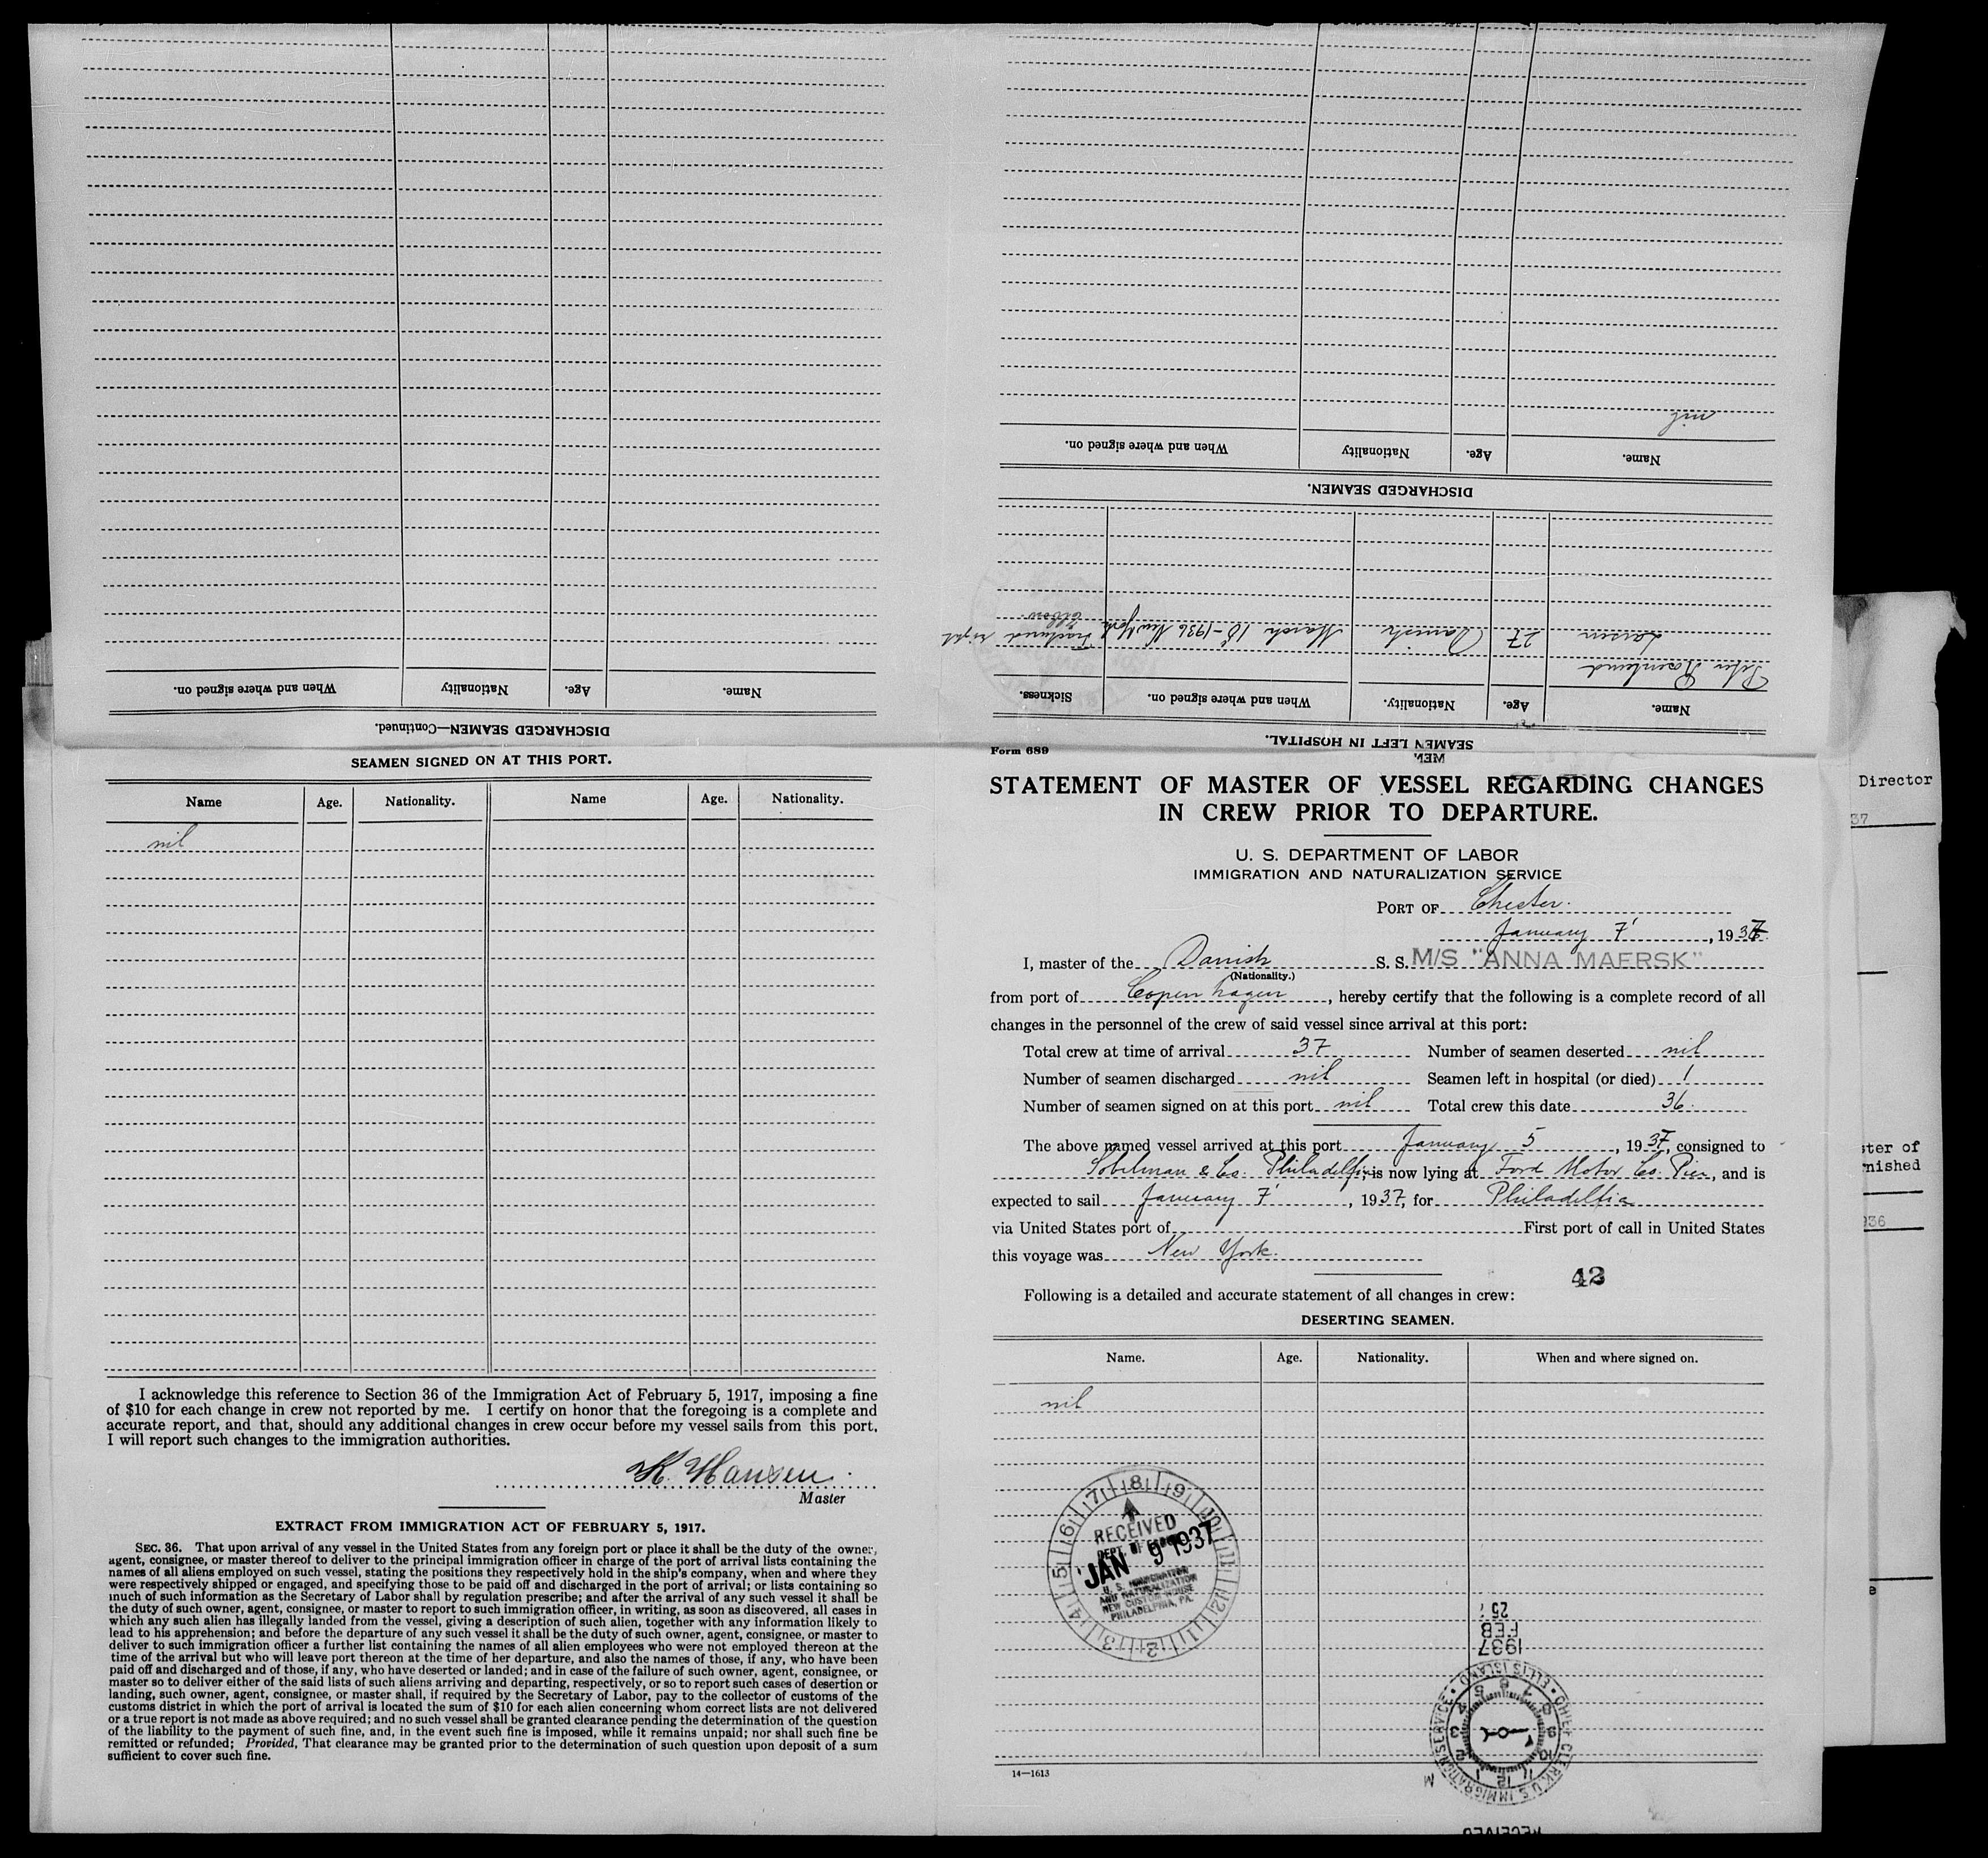 DISCHARGED SEAMEN—Continued.
Name. Age. Nationality When and where signed on.
SEAMEN LEFT IN HOSPITAL.
Name. Age. Nationality. When and where signed on. Sickness.
Peter Rosenlund
Larsen 27 Danish March 18-1936 New York Fractured right
Elbow.
DISCHARGED SEAMEN.
Name. Age. Nationality When and where signed on.
nil
MEN.
SEAMEN SIGNED ON AT THIS PORT.
Name Age. Nationality. Name Age. Nationality.
nil
I acknowledge this reference to Section 36 of the Immigration Act of February 5, 1917, imposing a fine
of $10 for each change in crew not reported by me. I certify on honor that the foregoing is a complete and
accurate report, and that, should any additional changes in crew occur before my vessel sails from this port,
I will report such changes to the immigration authorities.
K. Hansen.
Master
EXTRACT FROM IMMIGRATION ACT OF FEBRUARY 5, 1917.
SEC. 36. That upon arrival of any vessel in the United States from any foreign port or place it shall be the duty of the owner,
agent, consignee, or master thereof to deliver to the principal immigration officer in charge of the port of arrival lists containing the
names of all aliens employed on such vessel, stating the positions they respectively hold in the ship's company, when and where they
were respectively shipped or engaged, and specifying those to be paid off and discharged in the port of arrival; or lists containing so
much of such information as the Secretary of Labor shall by regulation prescribe; and after the arrival of any such vessel it shall be
the duty of such owner, agent, consignee, or master to report to such immigration officer, in writing, as soon as discovered, all cases in
which any such alien has illegally landed from the vessel, giving a description of such alien, together with any information likely to
lead to his apprehension; and before the departure of any such vessel it shall be the duty of such owner, agent, consignee, or master to
deliver to such immigration officer a further list containing the names of all alien employees who were not employed thereon at the
time of the arrival but who will leave port thereon at the time of her departure, and also the names of those, if any, who have been
paid off and discharged and of those, if any, who have deserted or landed; and in case of the failure of such owner, agent, consignee, or
master so to deliver either of the said lists of such aliens arriving and departing, respectively, or so to report such cases of desertion or
landing, such owner, agent, consignee, or master shall, if required by the Secretary of Labor, pay to the collector of customs of the
customs district in which the port of arrival is located the sum of $10 for each alien concerning whom correct lists are not delivered
or a true report is not made as above required; and no such vessel shall be granted clearance pending the determination of the question
of the liability to the payment of such fine, and, in the event such fine is imposed, while it remains unpaid; nor shall such fine be
remitted or refunded; Provided, That clearance may be granted prior to the determination of such question upon deposit of a sum
sufficient to cover such fine.
Form 689
STATEMENT OF MASTER OF VESSEL REGARDING CHANGES
IN CREW PRIOR TO DEPARTURE.
U. S. DEPARTMENT OF LABOR
IMMIGRATION AND NATURALIZATION SERVICE
PORT OF Chester.
January 7', 1937
I, master of the Danish S. S. M/S "ANNA MAERSK"
(Nationality.)
from port of Copenhagen, hereby certify that the following is a complete record of all
changes in the personnel of the crew of said vessel since arrival at this port:
Total crew at time of arrival 37 Number of seamen deserted nil
Number of seamen discharged nil Seamen left in hospital (or died) 1
Number of seamen signed on at this port nil Total crew this date 36.
The above named vessel arrived at this port January 5, 1937, consigned to
Sobelman & Co. Philadelfia, is now lying at Ford Motor Co. Pier, and is
expected to sail January 7', 1937, for Philadelfia
via United States port of First port of call in United States
this voyage was New York.
42
Following is a detailed and accurate statement of all changes in crew:
DESERTING SEAMEN.
Name. Age. Nationality. When and where signed on.
nil
RECEIVED
DEPT. OF LABOR
JAN 9 1937
U. S. IMMIGRATION
AND NATURALIZATION
NEW CUSTOM HOUSE
PHILADELPHIA, PA.
1937
FEB
25
CHIEF CLERK, U.S. IMMIGRATION SERVICE • ELLIS ISLAND •
M
RECEIVED
14—1613
Director
37
ster of
rnished
936
e